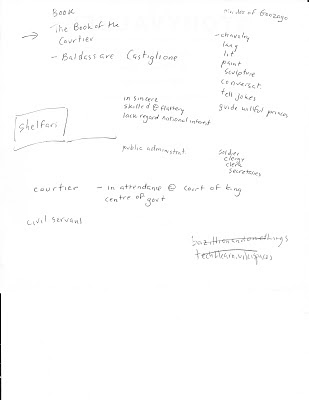 Book
The Book of the
Courtier
- Baldassare Castiglione
of Gonzago
- chivalry
lang
lit
paint
sculpture
conversat.
tell jokes
guide willful princes
insincere
skilled @ flattery
lack regard national interest
Shelfari
public administrat.
soldier
clergy
clerk
secretaries
courtier - in attendance @ court of king
centre of govt
civil servant